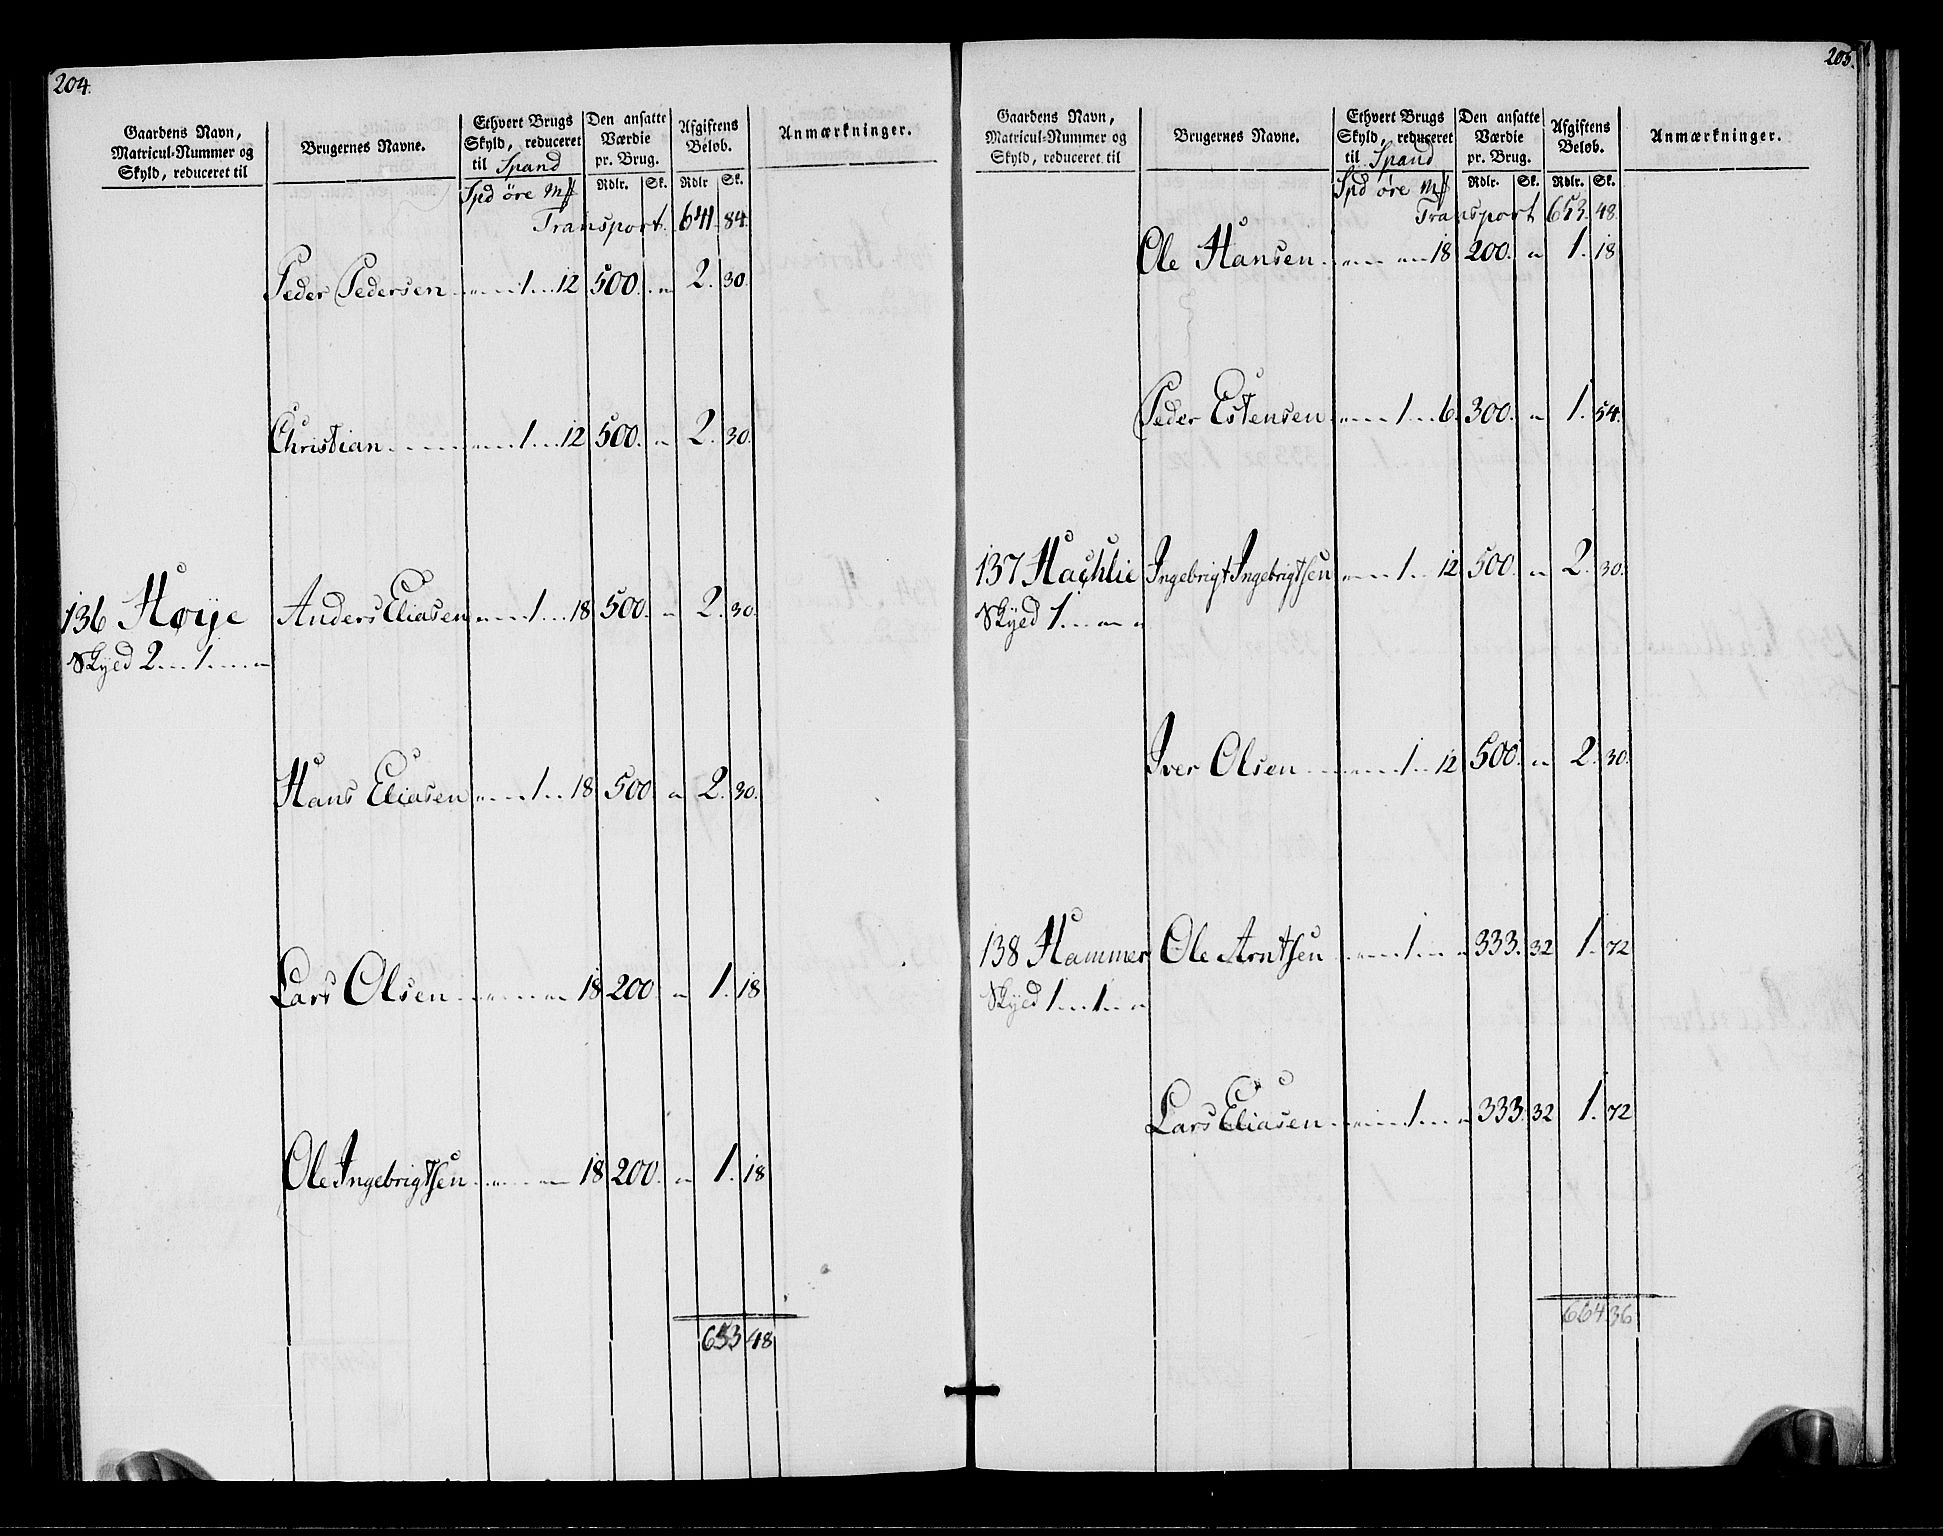 204.
Gaardens Navn, Matricul-Nummer og Skyld, reduceret til
Brugernes Navne.
Ethvert Brugs Skyld, reduceret til Spand
Den ansatte Værdie pr. Brug.
Afgiftens Beløb.
Anmærkninger.
Spd øre Mk Rdlr. Sk. Rdlr Sk.
Transport. 641. 84.
Peder Pedersen 1 12 500. 2. 30.
Christian 1 12 500. 2. 30.
136 Høije Anders Eliasen 1 18 500. 2. 30.
Skyld 2 1
Hans Eliasen 1 18 500 2. 30.
Lars Olsen 18 200 1. 18
Ole Ingebrigtsen 18 200. 1. 18
653 48
205.
Gaardens Navn, Matricul-Nummer og Skyld, reduceret til
Brugernes Navne.
Ethvert Brugs Skyld, reduceret til Spand
Den ansatte Værdie pr. Brug.
Afgiftens Beløb.
Anmærkninger.
Spd øre Mk Rdlr. Sk. Rdlr. Sk.
Transport 653. 48.
Ole Hansen 18 200. 1. 18
Peder Estensen 1 6. 300. 1. 54.
137 Hachlie Ingebrigt Ingebrigtsen 1 12 500. 2. 30.
Skyld 1
Iver Olsen 1 12 500. 2. 30.
138 Hammer Ole Arntsen 1 333. 32 1. 72
Skyld 1 1
Lars Eliasen 1 333. 32 1. 72
664 36